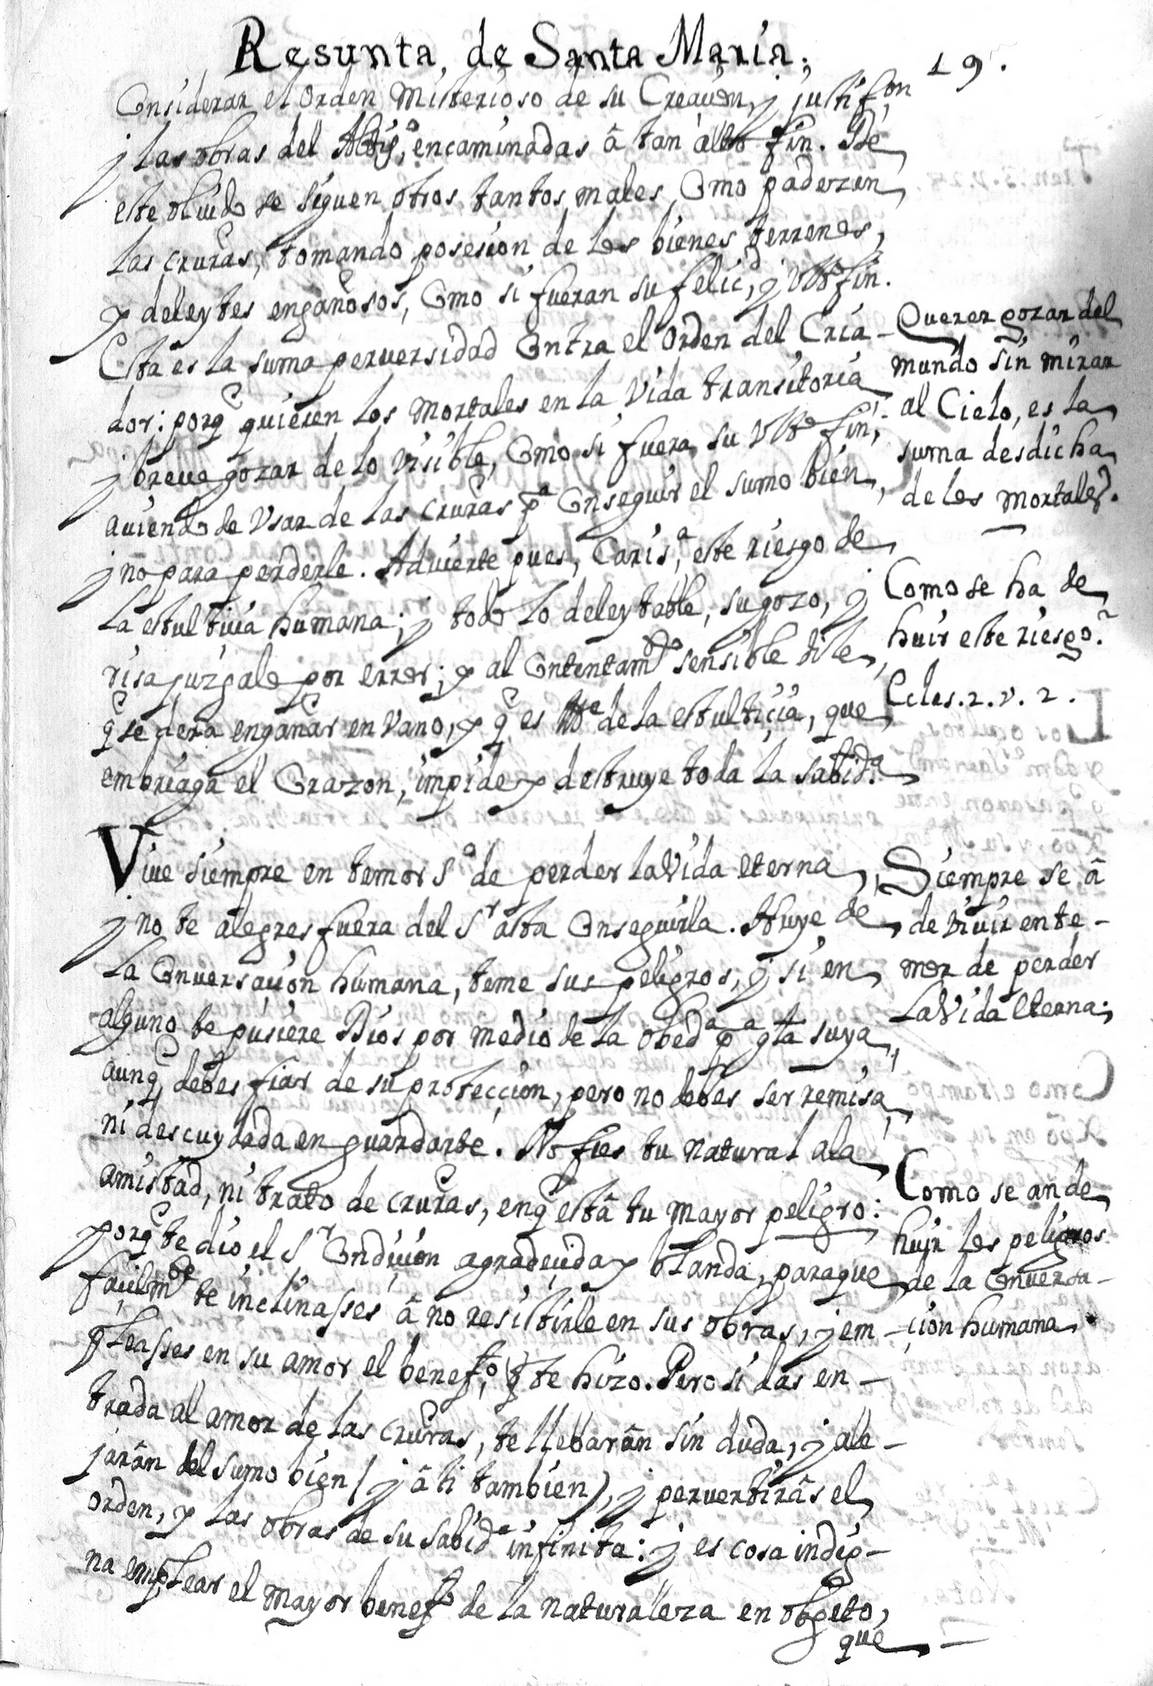 Resunta, de Santa Maria;
19.
Considerar el Orden Misterioso de su Creaçion, y justif.on
y las obras del Altis.o, encaminadas â tan alto fin. De
este oluido se siguen otros tantos males, Como padezen
las cruras, tomando posesion de los bienes terrenos,
y deleytes engañosos, Como si fueran su felic.d, y Vlto fin.
Esta es la suma perversidad Contra el Orden del Cria-
dor: porq quieren los Mortales en la Vida transitoria
y breue gozar de lo Visible, Como si fuera su Vlto fin;
auiendo de Vsar de las cruras p.a Conseguir el sumo bien,
y no para perderle. Aduierte pues, Caris.a, este riesgo de
la estultiçia humana; y todo lo deleytable, su gozo, y
risa juzgalo por error; y al Contentam.to sensible dile,
q se dexa engañar en Vano, y q es M.e de la estultiçia, que
embriaga el Corazon, impide y destruye toda la sabid.a
Viue siempre en temor S.o de perder la Vida eterna,
y no te alegres fuera del S.r asta Conseguirla. Huye de
la Conuersaçion humana, teme sus peligros, y si en
alguno te pusiere Dios por medio de la obed.a p.a gta suya,
aunq debes fiar de su protecçion, pero no debes ser remisa,
ni descuydada en guardarte. No fies tu natural a la
amistad, ni trato de cruras, en q está tu mayor peligro:
porq te dio el S.r Condiçion agradeçida y blanda, para que
façilm.te te inclinasses â no resistirle en sus obras, y em-
pleasses en su amor el benef.o, q te hizo. Pero si das en-
trada al amor de las cruras, te llebarân sin duda, y ale-
jarân del sumo bien (y â ti tambien), y pervertirâs el
orden, y las obras de su sabid.a infinita: y es cosa indig-
na emplear el mayor benef.o de la naturaleza en objeto,
que
Querer gozar del
mundo sin mirar
al Cielo, es la
suma desdicha
de los mortales.
Como se ha de
huir este riesgo.
Ecles. 2. v. 2.
Siempre se â
de viuir en te-
mor de perder
la Vida eterna;
Como se an de
huir los peligros
de la Conuersa-
çion humana